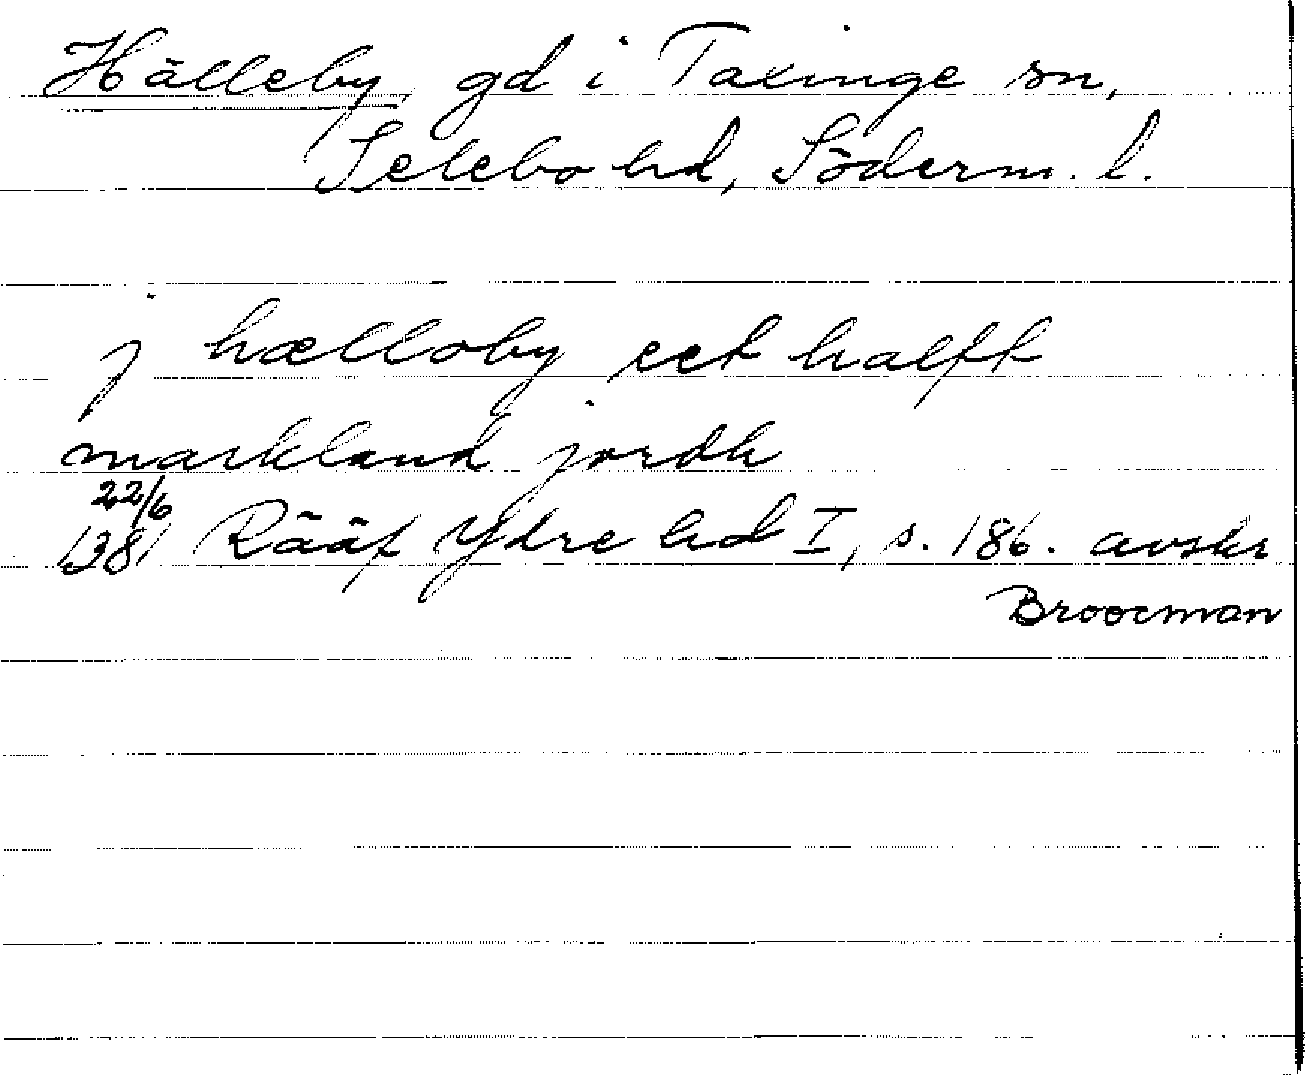 Hälleby, gd i Taxinge sn,
Selebo hd, Söderm. l.
j hælloby eet halft
markland jordh
22/6
1381 Rääf Ydre hd I, s. 186. avskr
Broocman